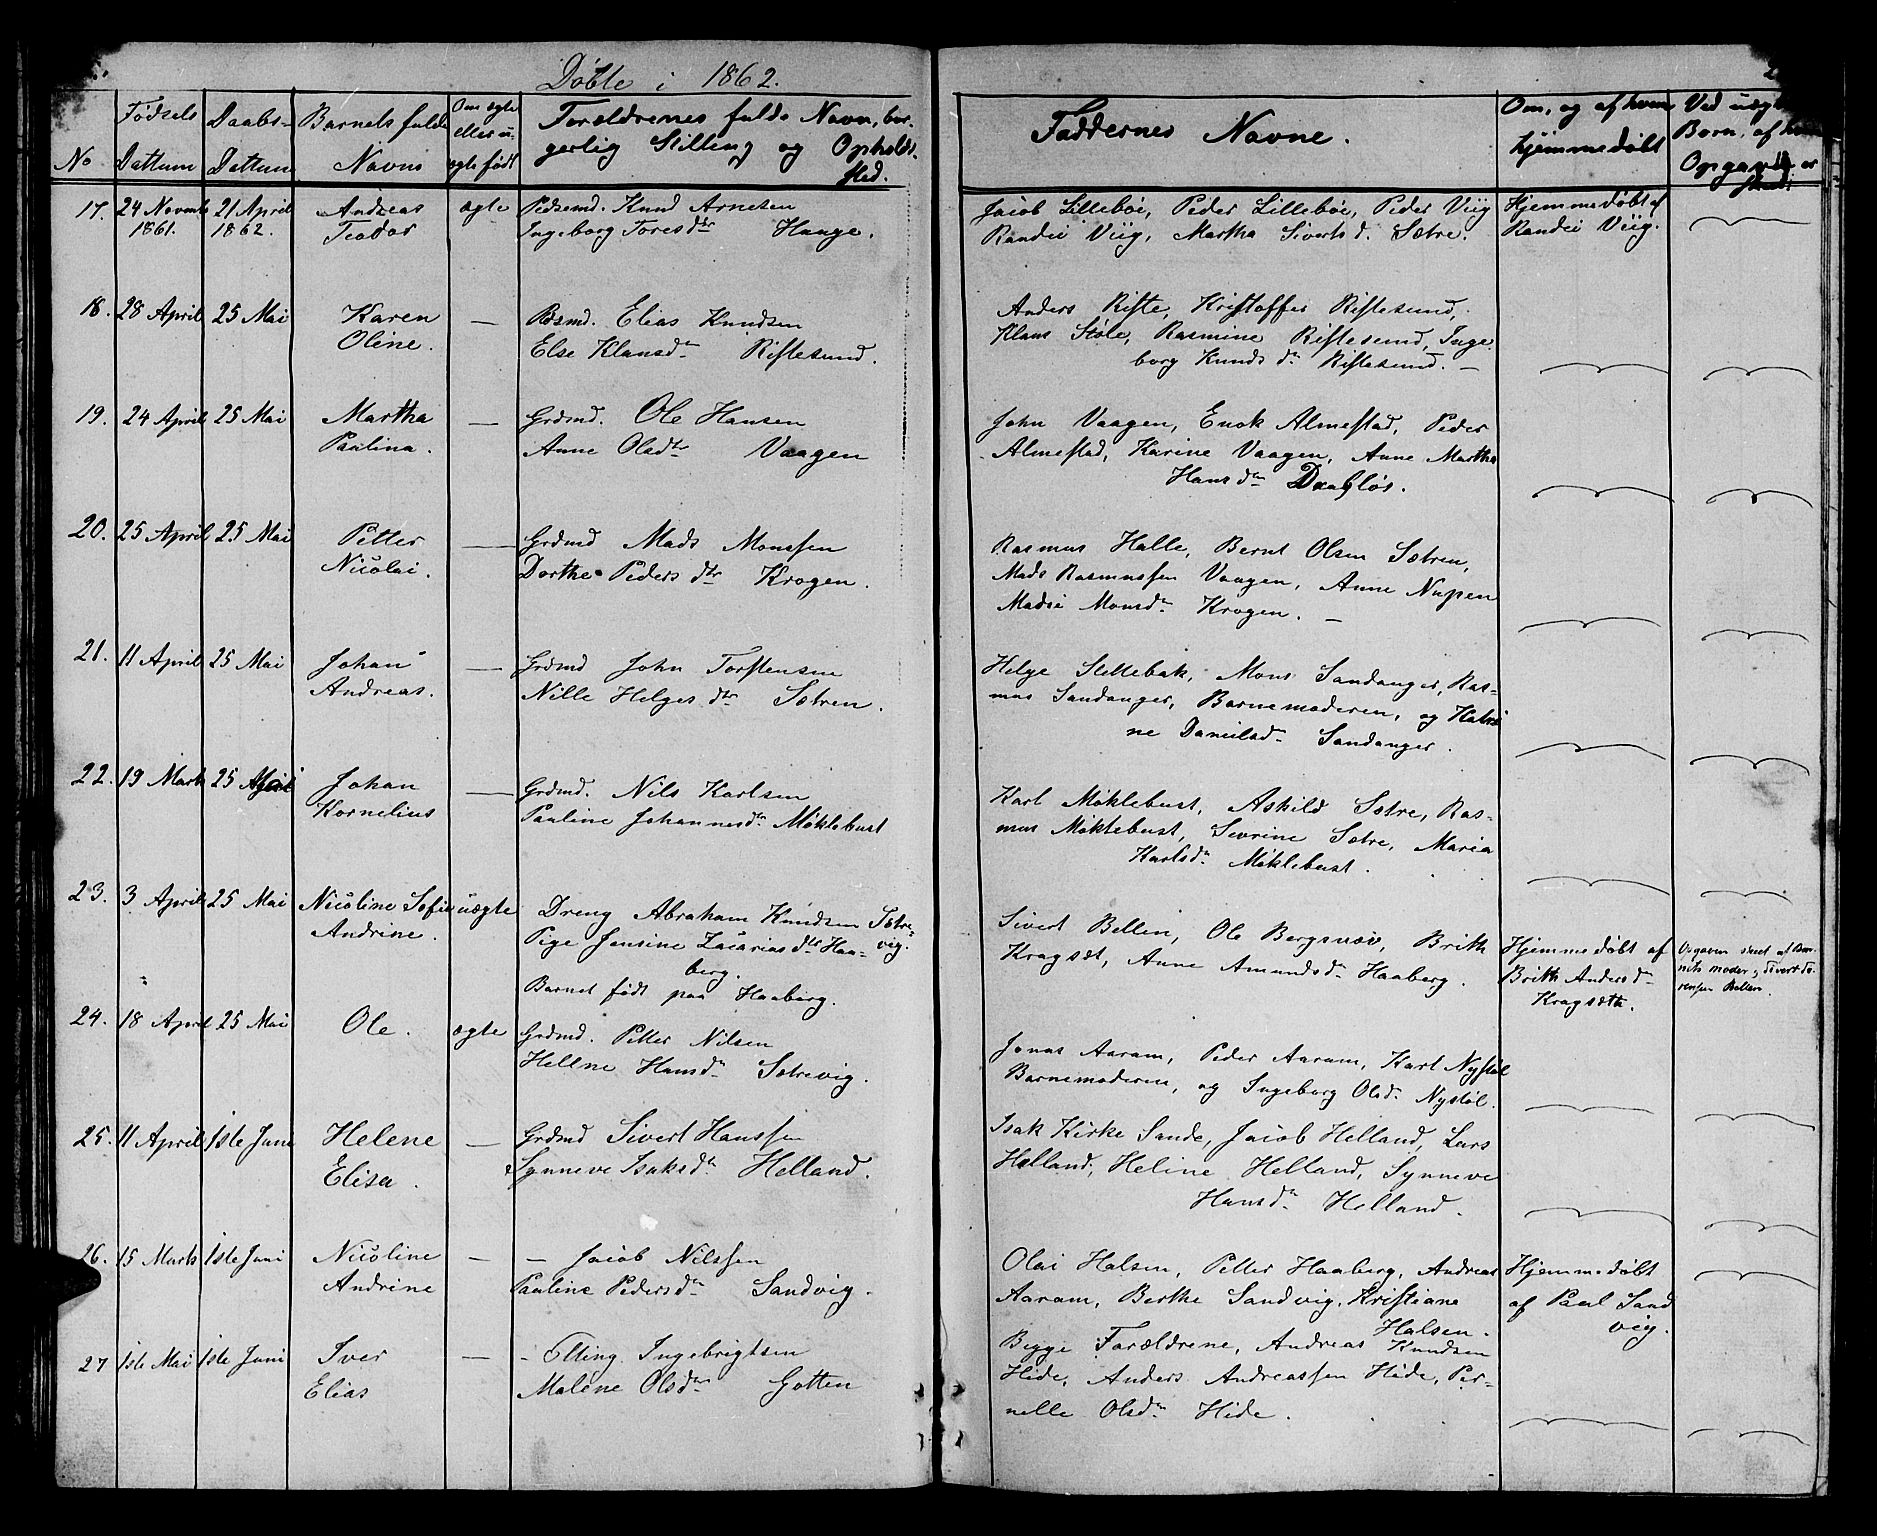 Døbte i 1862.
No
Fødsels Dattum
Daabs- Dattum
Barnets fulde Navn
Om ægte eller u- ægte født
Forældrenes fulde Navn, bor-
gerlig Stilling og Opholds
sted.
Faddernes Navne.
Om, og af hvem hjemmedøbt
Ved uægte Børn, af hvem Opgaven er skeet
17. 24 Novemb 21 April Andreas ægte Pdsemd. Knud Arnesen
1861. 1862. Teodor Ingeborg Toresdtr Hauge.
Jacob Lillebøe, Peder Lillebøe, Peder Viig Hjemmedøbt af
Randei Viig, Martha Sivertsd. Sætre. Randei Viig.
18. 28 April 25 Mai Karen — Pdsmd. Elias Knudsen
Oline. Else Klausdtr Riftesund.
Anders Rifte, Kristoffer Riftesund,
Klaus Støle, Rasmine Riftesund, Inge-
borg Knudsdtr Riftesund. —
19. 24 April 25 Mai Martha — Grdmd. Ole Hansen
Paulina. Anne Olsdtr Vaagen
John Vaagen, Enok Almestad, Peder
Almestad, Karine Vaagen, Anne Martha
Hansdtr Dragløs.
20. 25 April 25 Mai Petter — Grdmd Mads Monssen
Nicolai. Dorthe Pedersdtr Krogen.
Rasmus Halle, Bernt Olsen Sætren,
Mads Rasmussen Vaagen, Anne Nupen
Madsi Monsdtr Krogen. —
21. 11 April 25 Mai Johan — Grdmd John Torstensen
Andreas. Nille Helgesdtr Sætren.
Helge Slettebak, Mons Sandanger, Ras-
mus Sandanger, Barnemoderen, og Katri
ne Danielsdtr Sandanger.
22. 19 Marts 25 April Johan — Grdmd. Nils Karlsen
Kornelius Pauline Johannesdtr Møklebust
Karl Møklebust, Askild Sætre, Ras-
mus Møklebust, Sevrine Sætre, Maria
Karlsdtr Møklebust.
23. 3 April 25 Mai Nicoline Sofie uægte Dreng Abraham Knudsen Sætre-
Andrine. Pige Jensine Zacariasdtr Haa- vig.
berg.
Barnet født paa Haaberg.
Sivert Bellen, Ole Bergsnæv, Brith Hjemmedøbt af
Kragsæt, Anne Amundsdtr Haaberg. Brith Andersd-
Kragsæth.
Opgaven skeet af Bar-
nets moder, Sivert
Bellen.
24. 18 April 25 Mai Ole. ægte Grdmd. Petter Nilsen
Hellene Hansdtr Sætrevig.
Jonas Aaram, Peder Aaram, Karl Nystøl
Barnemoderen, og Ingeborg Olsd- Nystøl.
25. 11 April 1ste Juni Helene — Grdmd Sivert Hanssen
Elisa. Synneve Isaksdtr Helland.
Isak Kirke Sande, Jacob Helland, Lars
Helland, Heline Helland, Synneve
Hansdtr Helland.
26. 15 Marts 1ste Juni Nicoline — — Jacob Nilssen
Andrine Pauline Pedersdtr Sandvig.
Olai Halsen, Petter Haaberg, Andreas Hjemmedøbt
Aaram, Berthe Sandvig, Kristiane af Paul Sand
Halsen. vig.
27 1ste Mai 1ste Juni Iver — - Elling Ingebrigtsen
Elias Malene Olsdtr Gotten
Begge Forældrene, Andreas Knudsen
Hide, Anders Andreassen Hide, Per-
nelle Olsdtr Hide.